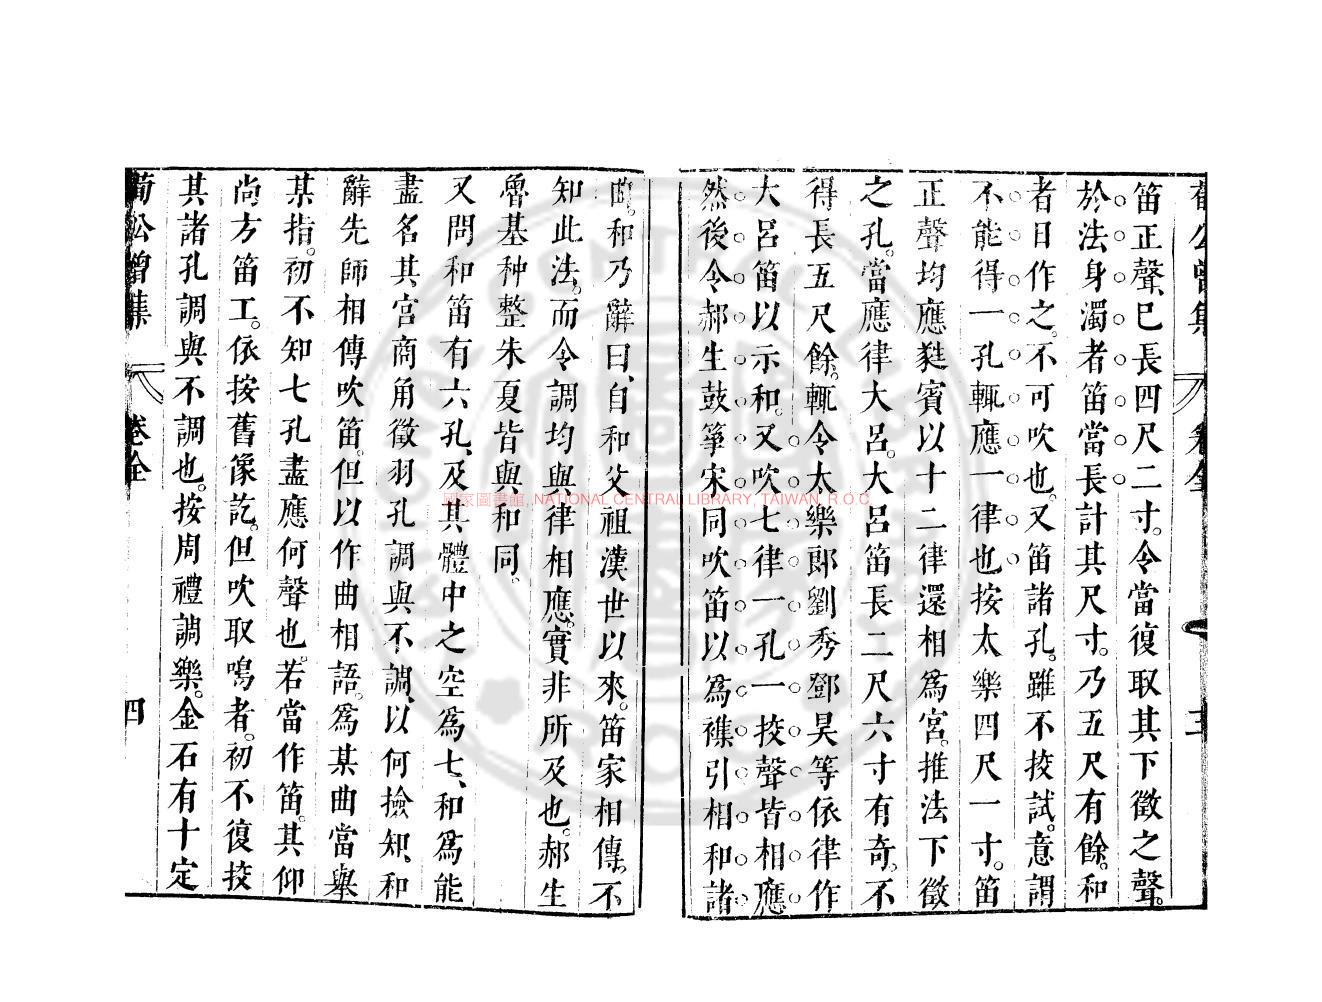 荀公曾集 卷全 三
笛正聲、已長四尺二寸。令當復取其下徵之聲。
於法身濁者笛當長計其尺寸。乃五尺有餘。和
者日作之。不可吹也。又笛諸孔。雖不挍試。意謂
不能得一孔輒應一律也按太樂四尺一寸。笛
正聲均應蕤賓以十二律還相爲宮。推法下徵
之孔。當應律大呂。大呂笛長二尺六寸有奇。不
得長五尺餘。輒令太樂郎劉秀鄧昊等依律作
大呂笛以示和。又吹七律一孔一挍聲皆相應
然後令郝生鼓箏宋同吹笛以爲襍引相和諸
曲。和乃辭曰、自和父祖漢世以來。笛家相傳。不
知此法。而令調均與律相應。實非所及也。郝生
魯基种整朱夏皆與和同。
又問和笛有六孔、及其體中之空爲七、和爲能
盡名其宮商角徵羽孔調與不調、以何撿知、和
辭先師相傳吹笛。但以作曲相語。爲某曲當舉
某指。初不知七孔盡應何聲也。若當作笛。其仰
尚方笛工。依按舊像訖。但吹取鳴者。初不復挍
其諸孔調與不調也。按周禮調樂。金石有十定
荀公曾集 卷全 四
國家圖書館, NATIONAL CENTRAL LIBRARY, TAIWAN, R.O.C